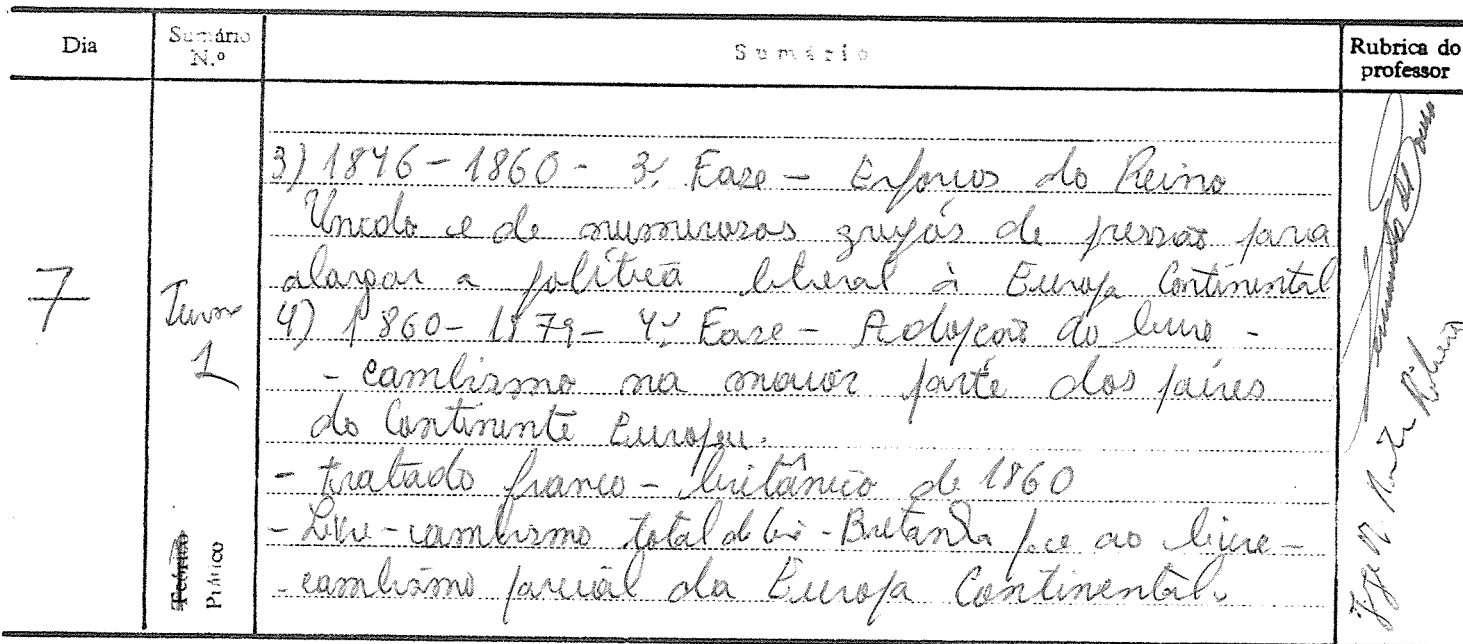 Dia
Sumário N.º
Sumário
Rubrica do professor
7
Turma 1
Teórico
Prático
3) 1846 - 1860 - 3ª Fase - Esforços do Reino
Unido e de numerosos grupos de pressão para
alargar a política liberal à Europa Continental
4) 1860 - 1879 - 4ª Fase - Adopção do livre -
- cambismo na maior parte dos países
do Continente Europeu.
- tratado franco - britânico de 1860
- Livre - cambismo total da Grã - Bretanha face ao livre -
- cambismo parcial da Europa Continental.
Ribeiro